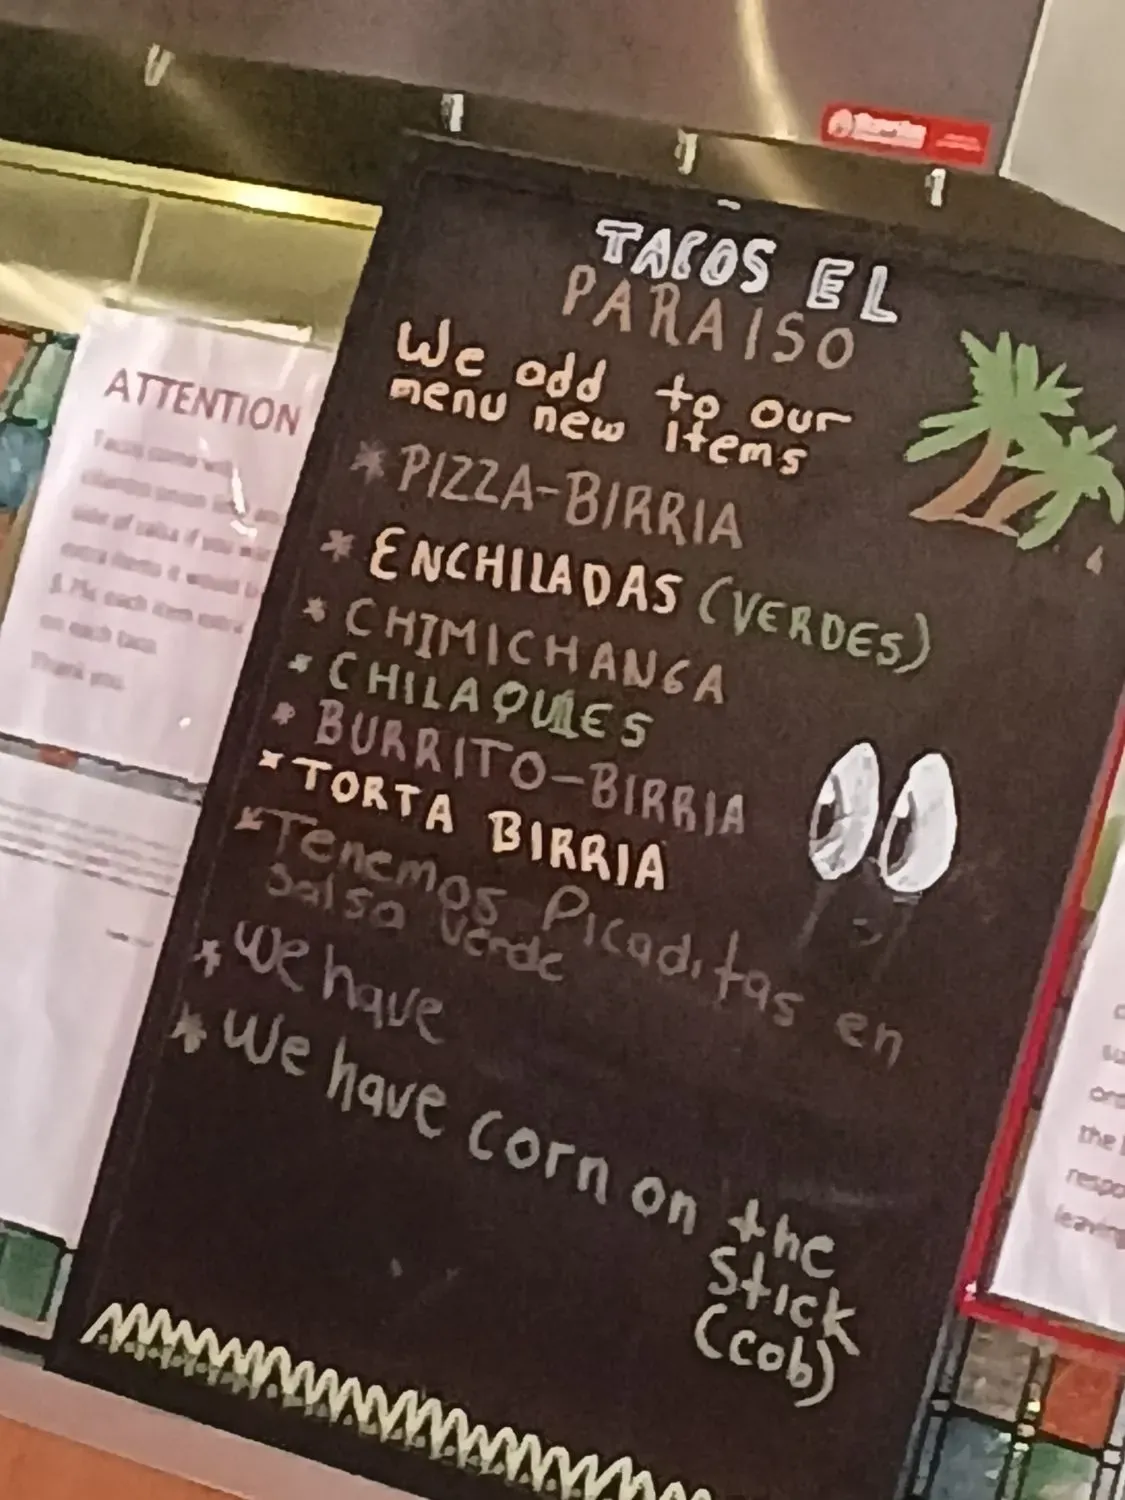 TACOS EL
PARAISO
We add to our
menu new items
* PIZZA-BIRRIA
* ENCHILADAS (VERDES)
* CHIMICHANGA
* CHILAQUILES
* BURRITO-BIRRIA
* TORTA BIRRIA
* Tenemos Picaditas en
Salsa Verde
* We have
* We have corn on the
Stick
(cob)
ATTENTION
Tacos come with
cilantro onion
side of salsa if you
extra items it would
$.75c each item extra
on each taco
Thank you
the
leaving